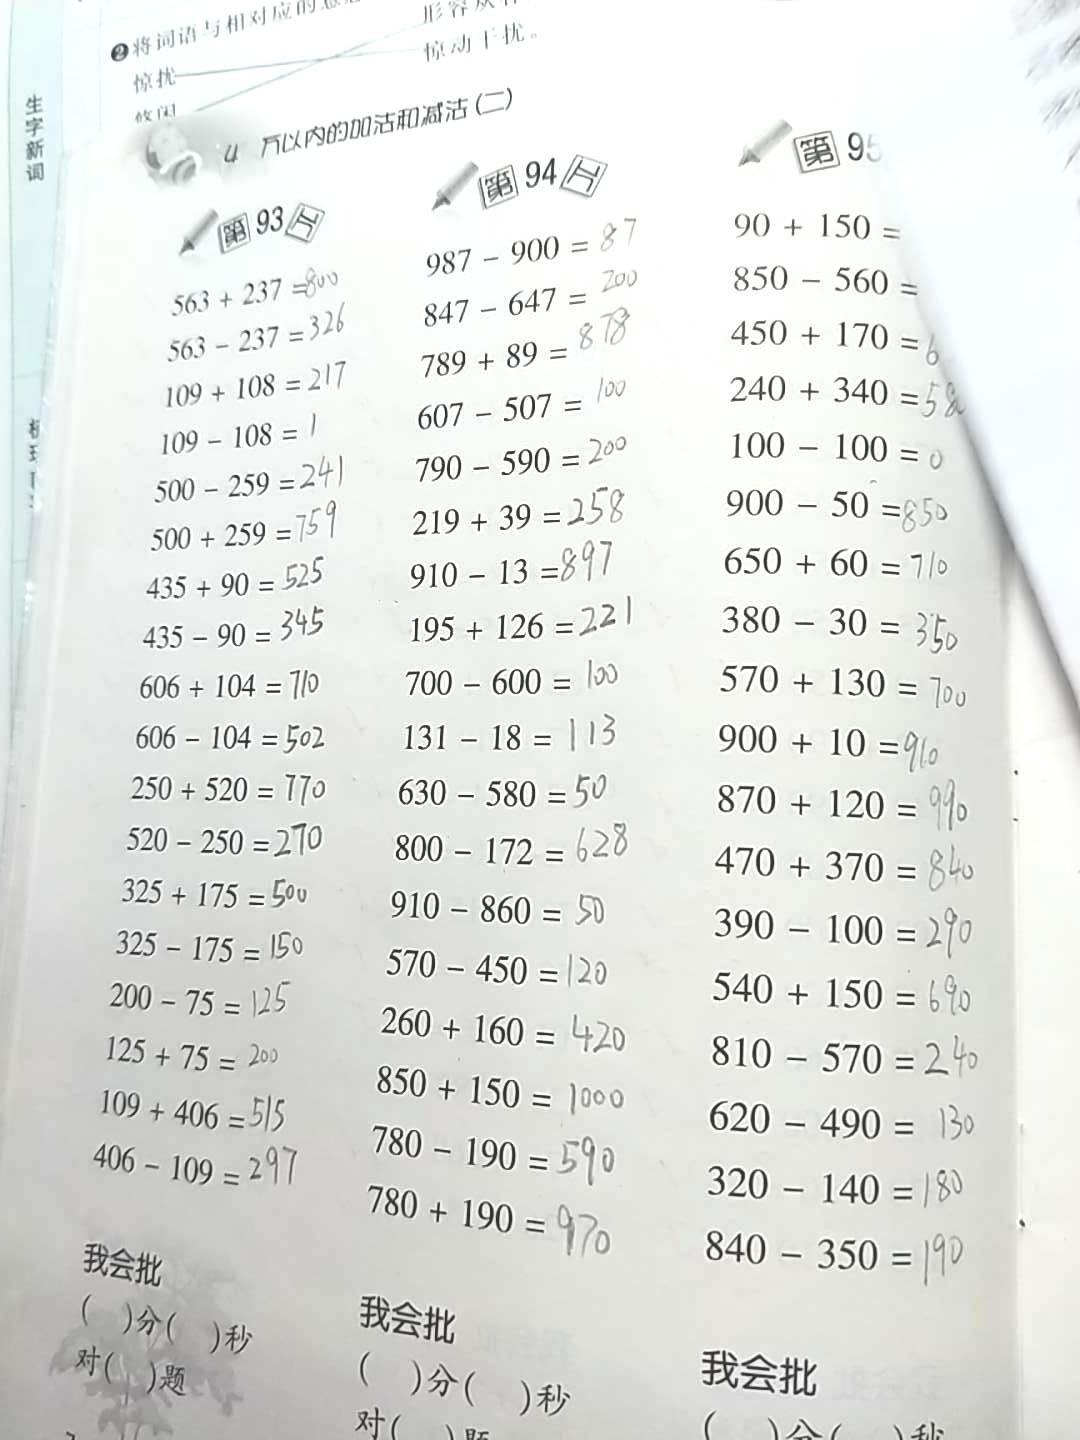 ❷将词语与相对应的意
惊扰
惊动干扰。
悠闲
生字新词
4 万以内的加法和减法(二)
第93天
563 + 237 =800
563 - 237 =326
109 + 108 =217
109 - 108 = 1
500 - 259 =241
500 + 259 =759
435 + 90 = 525
435 - 90 = 345
606 + 104 =710
606 - 104 =502
250 + 520 = 770
520 - 250 =270
325 + 175 =500
325 - 175 =150
200 - 75 =125
125 + 75 = 200
109 + 406 =515
406 - 109 =297
我会批
( )分( )秒
对( )题
第94天
987 - 900 = 87
847 - 647 = 200
789 + 89 = 878
607 - 507 = 100
790 - 590 =200
219 + 39 =258
910 - 13 =897
195 + 126 =221
700 - 600 = 100
131 - 18 = 113
630 - 580 =50
800 - 172 = 628
910 - 860 = 50
570 - 450 =120
260 + 160 = 420
850 + 150 = 1000
780 - 190 =590
780 + 190 =970
我会批
( )分( )秒
对( )题
第95
90 + 150 =
850 - 560 =
450 + 170 =6
240 + 340 =58
100 - 100 = 0
900 - 50 =850
650 + 60 = 710
380 - 30 = 350
570 + 130 = 700
900 + 10 =910
870 + 120 = 990
470 + 370 = 840
390 - 100 = 290
540 + 150 = 690
810 - 570 = 240
620 - 490 = 130
320 - 140 =180
840 - 350 =190
我会批
( )分( )秒